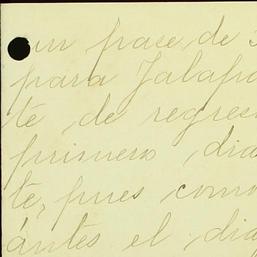 un pase de
para Jalapa
te de regres
primero dia
te, pues como
ántes el dia